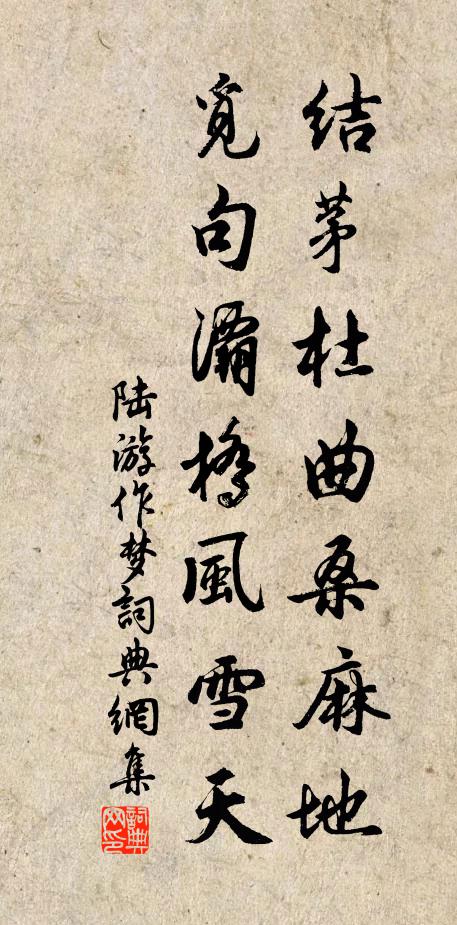 结茅杜曲桑麻地
覓句灞橋風雪天
陆游作梦詞典網集
詞典網印